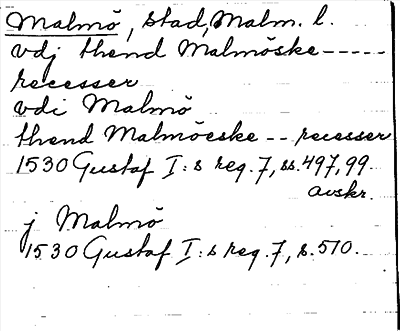 Malmö, stad, Malm. l.
vdj thend Malmöske -----
recesser
vdi Malmö
thend Malmöeske -- recesser
1530 Gustaf I:s reg. 7, ss. 497, 99
avskr.
j Malmö
1530 Gustaf I:s reg. 7, s. 510.